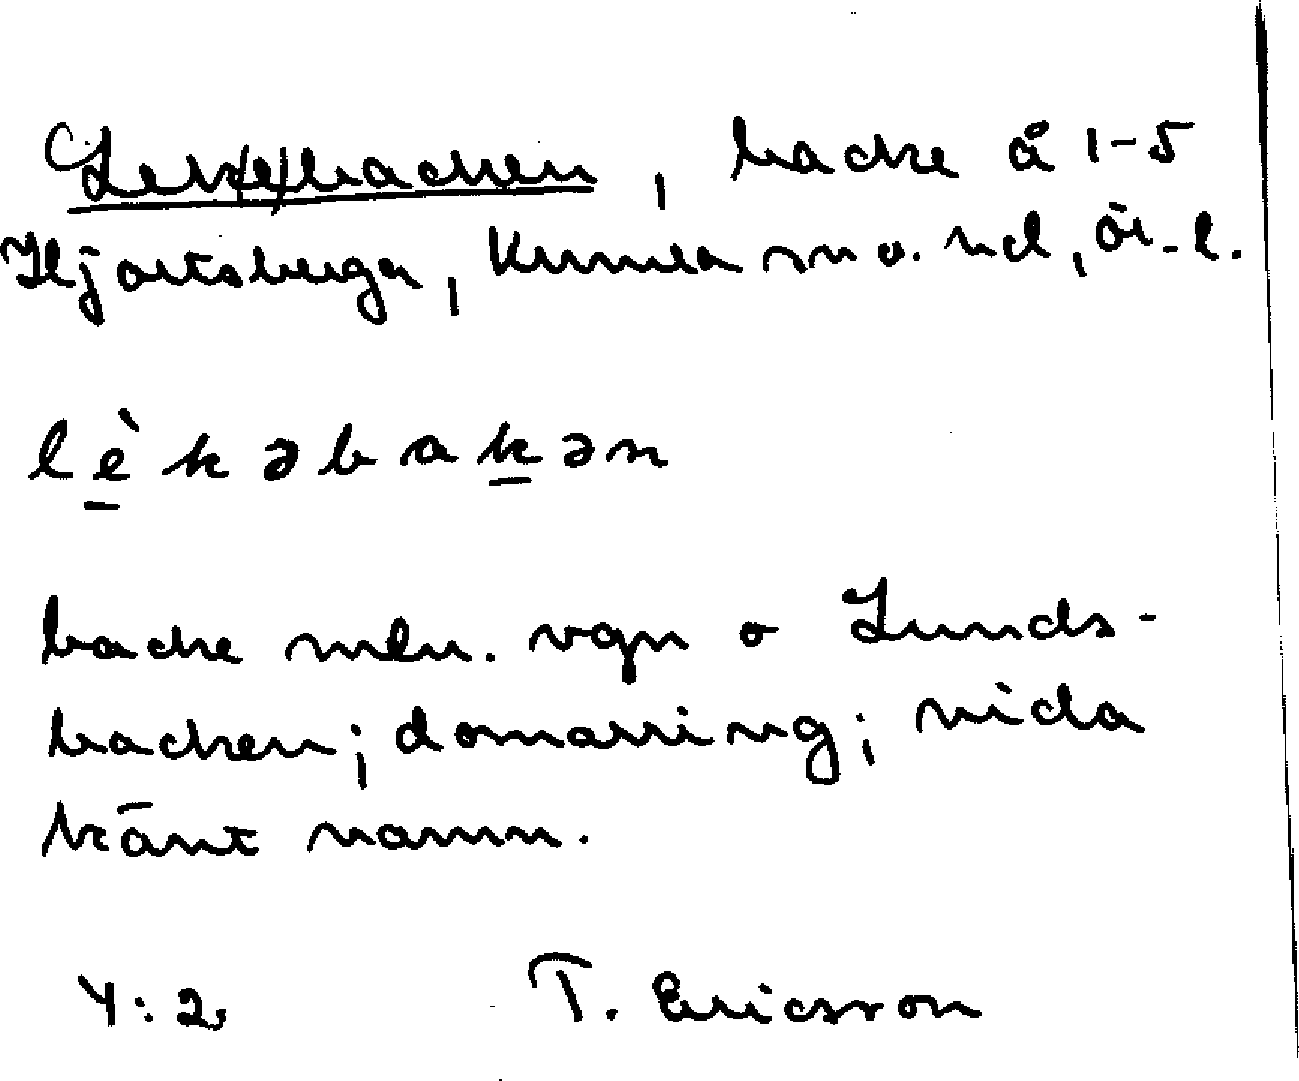 Lekebacken, backe å 1-5
Hjortsberga, Kumla sn o. hd, Ör. l.
lè̱kəbaḵən
backe mln. vgn o Lunds-
backen; domarring; vida
känt namn.
4:2. T. Ericsson